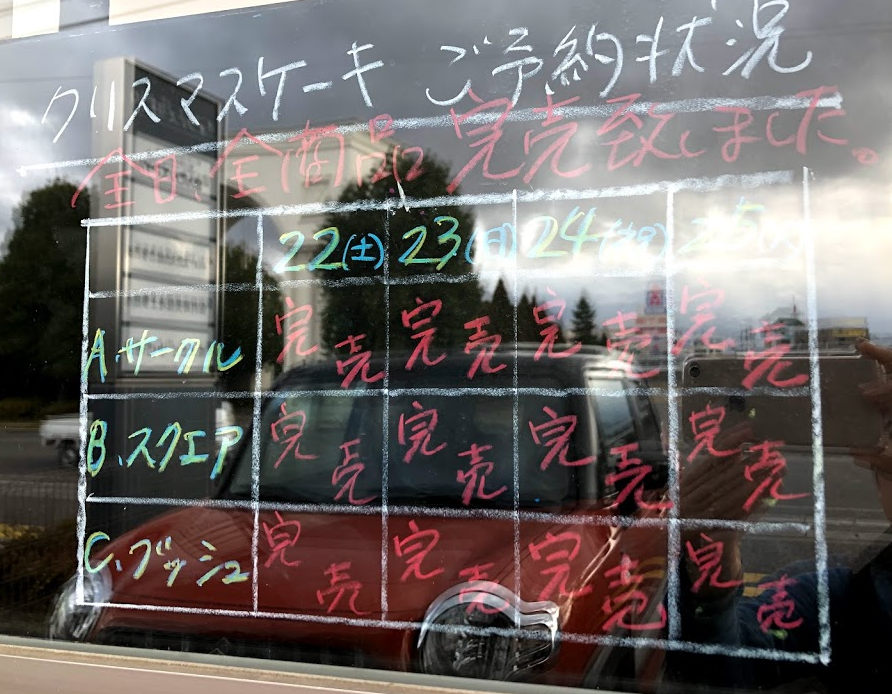 クリスマスケーキ ご予約状況
全日、全商品 完売致しました。
22(土) 23(日) 24(月) 25(火)
A.サークル 完売 完売 完売 完売
B.スクエア 完売 完売 完売 完売
C.ブッシュ 完売 完売 完売 完売